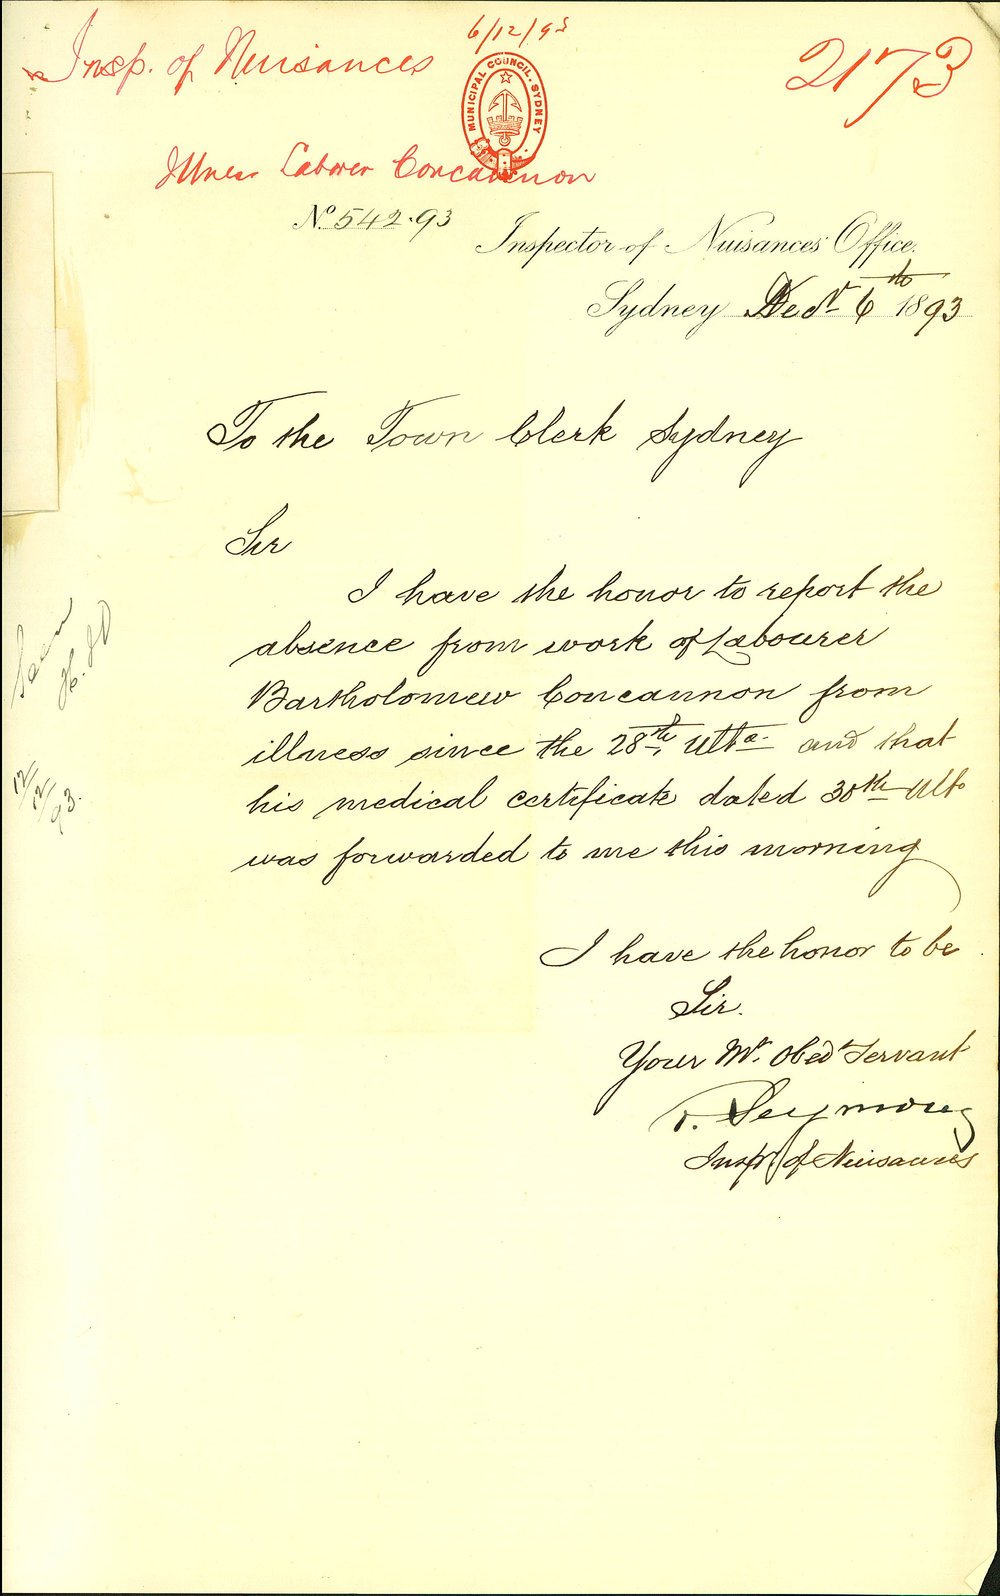 6/12/93
Insp. of Nuisances
2173
MUNICIPAL COUNCIL. SYDNEY
Illness Laborer Concannon
No. 542.93
Inspector of Nuisances Office.
Sydney Decr 6th 1893
To the Town Clerk Sydney
Sir
I have the honor to report the
absence from work of Labourer
Bartholomew Concannon from
illness since the 28th, Ulto. and that
his medical certificate dated 30th Ulto
was forwarded to me this morning
I have the honor to be
Sir.
Your Mt. Obedt Servant
Seymour
Inspr of Nuisances
Seen
12/12/93.